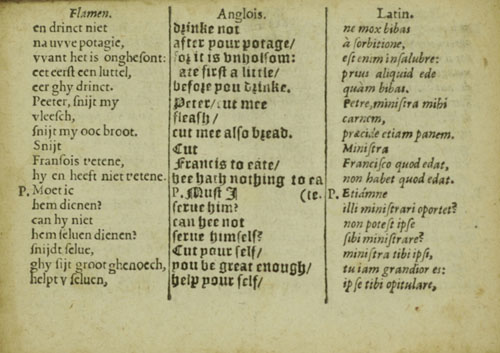 Flamen.
en drinct niet
na uvve potagie,
vvant het is onghesont:
eet eerst een luttel,
eer ghy drinct.
Peeter, snijt my
vleesch,
snijt my ooc broot.
Snijt
Fransois t'etene,
hy en heeft niet t'etene.
P. Moet ic
hem dienen?
can hy niet
hem seluen dienen?
snijdt selue,
ghy sijt groot ghenoech,
helpt v seluen,
Anglois.
drinke not
after your potage/
for it is vnholsom:
ate first a little/
before you drinke.
Peter/ cut mee
fleash/
cut mee also bread.
Cut
Francis to eate/
hee hath nothing to ea
P. Must J (te.
serue him?
can hee not
serue himself?
Cut your self/
you be great enough/
help your self/
Latin.
ne mox bibas
à sorbitione,
est enim insalubre:
prius aliquid ede
quàm bibas.
Petre, ministra mihi
carnem,
præcide etiam panem.
Ministra
Francisco quod edat,
non habet quod edat.
P. Etiámne
illi ministrari oportet?
non potest ipse
sibi ministrare?
ministra tibi ipsi,
tu iam grandior es:
ipse tibi opitulare,